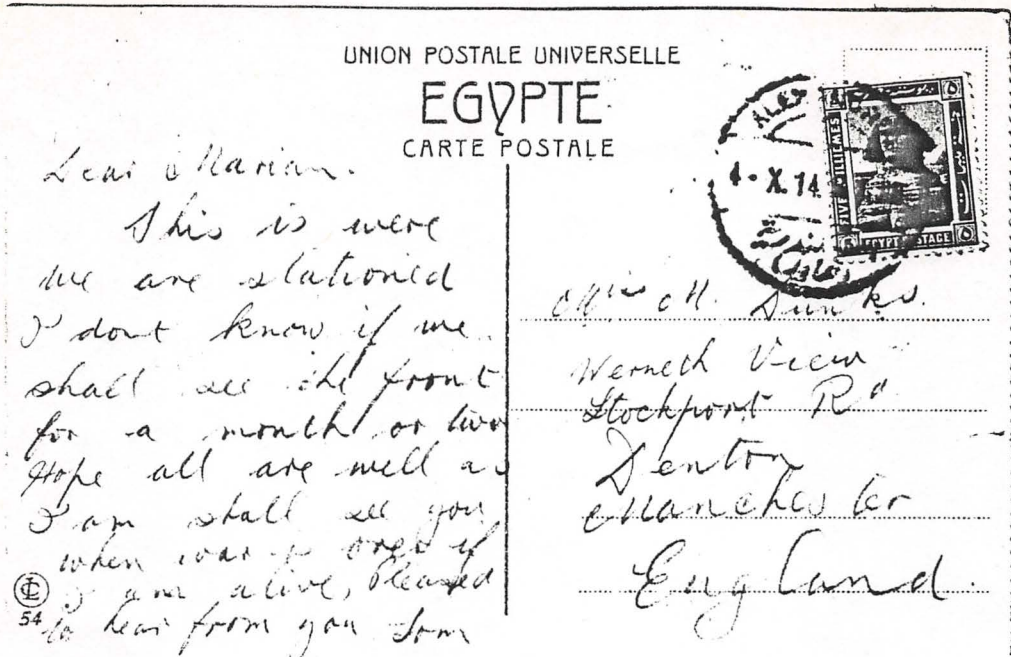 UNION POSTALE UNIVERSELLE
EGYPTE
CARTE POSTALE
Dear Marian.
This is were
we are stationed
I dont know if we
shall see the front
for a month or two
Hope all are well as
I am shall see you
when war is over if
I am alive, Pleased
to hear from you Tom
54
ALEX
4 - X. 14
FIVE MILLIEMES
EGYPT POSTAGE
Miss M. Dunks.
Werneth View
Stockport Rd
Denton
Manchester
England.